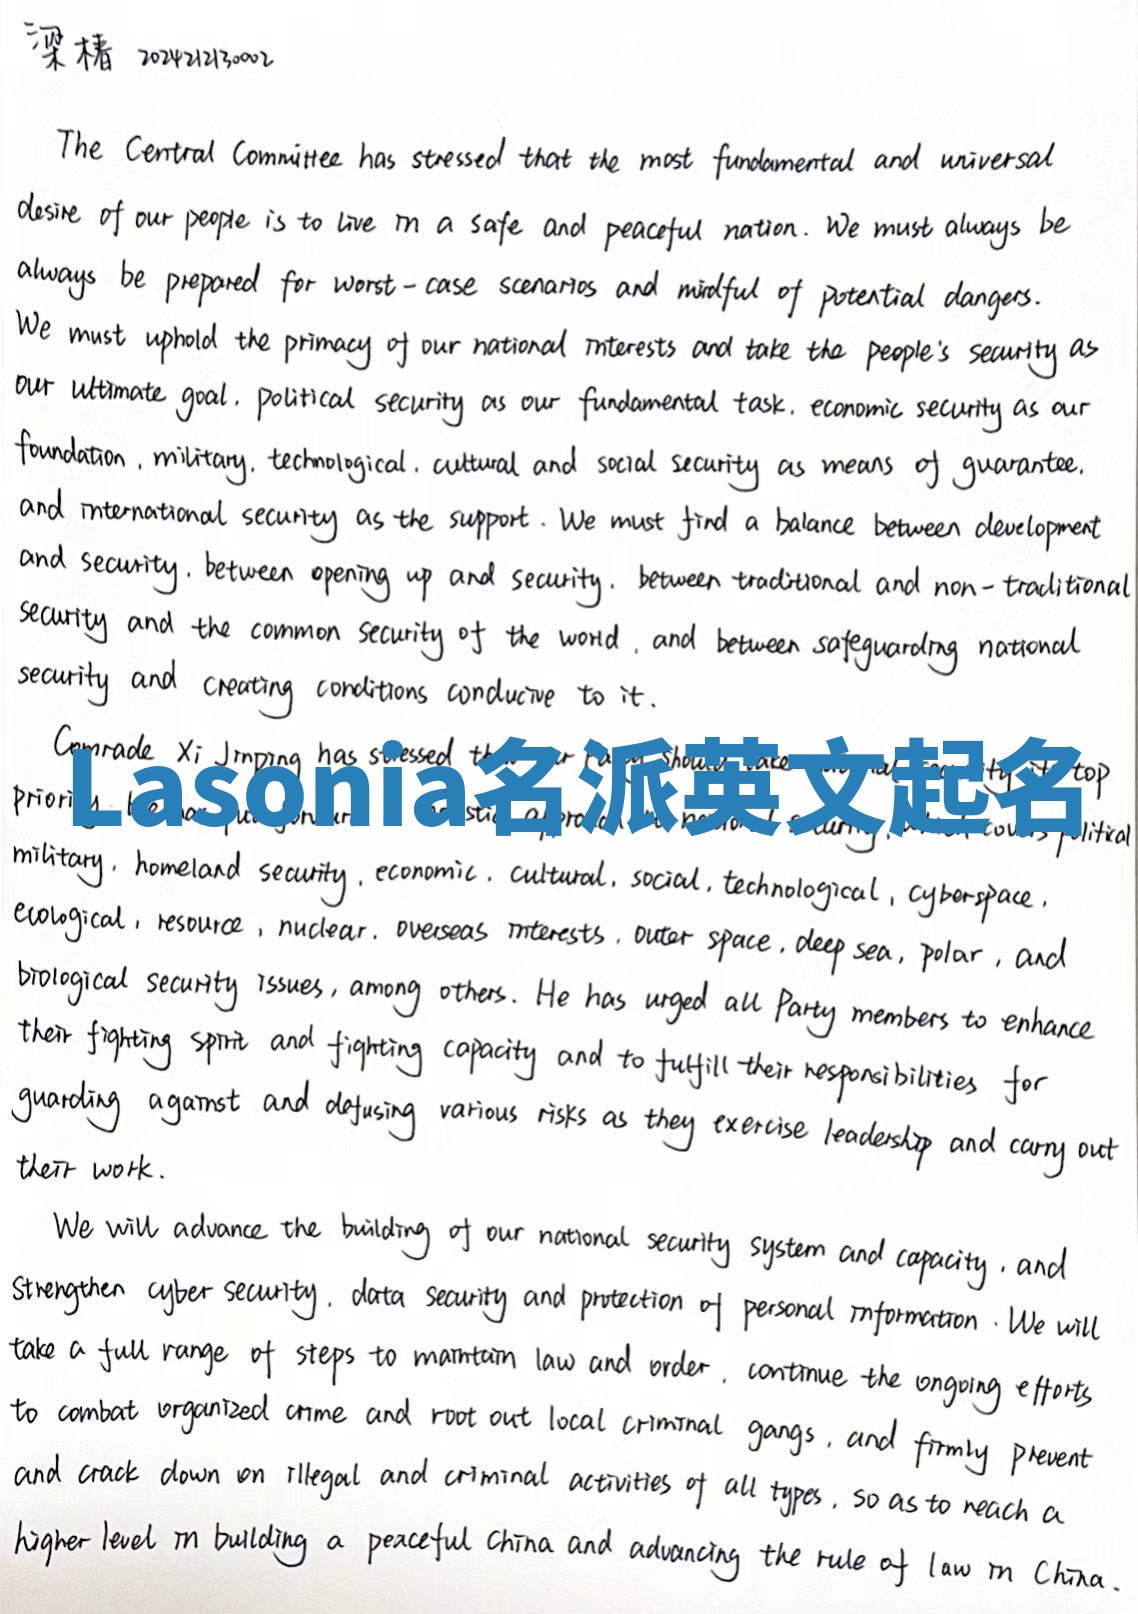 梁椿 2024212130002
The Central Committee has stressed that the most fundamental and universal
desire of our people is to live in a safe and peaceful nation. We must always be
always be prepared for worst-case scenarios and mindful of potential dangers.
We must uphold the primacy of our national interests and take the people's security as
our ultimate goal, political security as our fundamental task, economic security as our
foundation, military, technological, cultural and social security as means of guarantee,
and international security as the support. We must find a balance between development
and security, between opening up and security, between traditional and non-traditional
security and the common security of the world, and between safeguarding national
security and creating conditions conducive to it.
Comrade Xi Jinping has stressed should take top
Lasonia名派英文起名
priority. covers political
military, homeland security, economic, cultural, social, technological, cyberspace,
ecological, resource, nuclear, overseas interests, outer space, deep sea, polar, and
biological security issues, among others. He has urged all Party members to enhance
their fighting spirit and fighting capacity and to fulfill their responsibilities for
guarding against and defusing various risks as they exercise leadership and carry out
their work.
We will advance the building of our national security system and capacity, and
strengthen cyber security, data security and protection of personal information. We will
take a full range of steps to maintain law and order, continue the ongoing efforts
to combat organized crime and root out local criminal gangs, and firmly prevent
and crack down on illegal and criminal activities of all types, so as to reach a
higher level in building a peaceful China and advancing the rule of law in China.